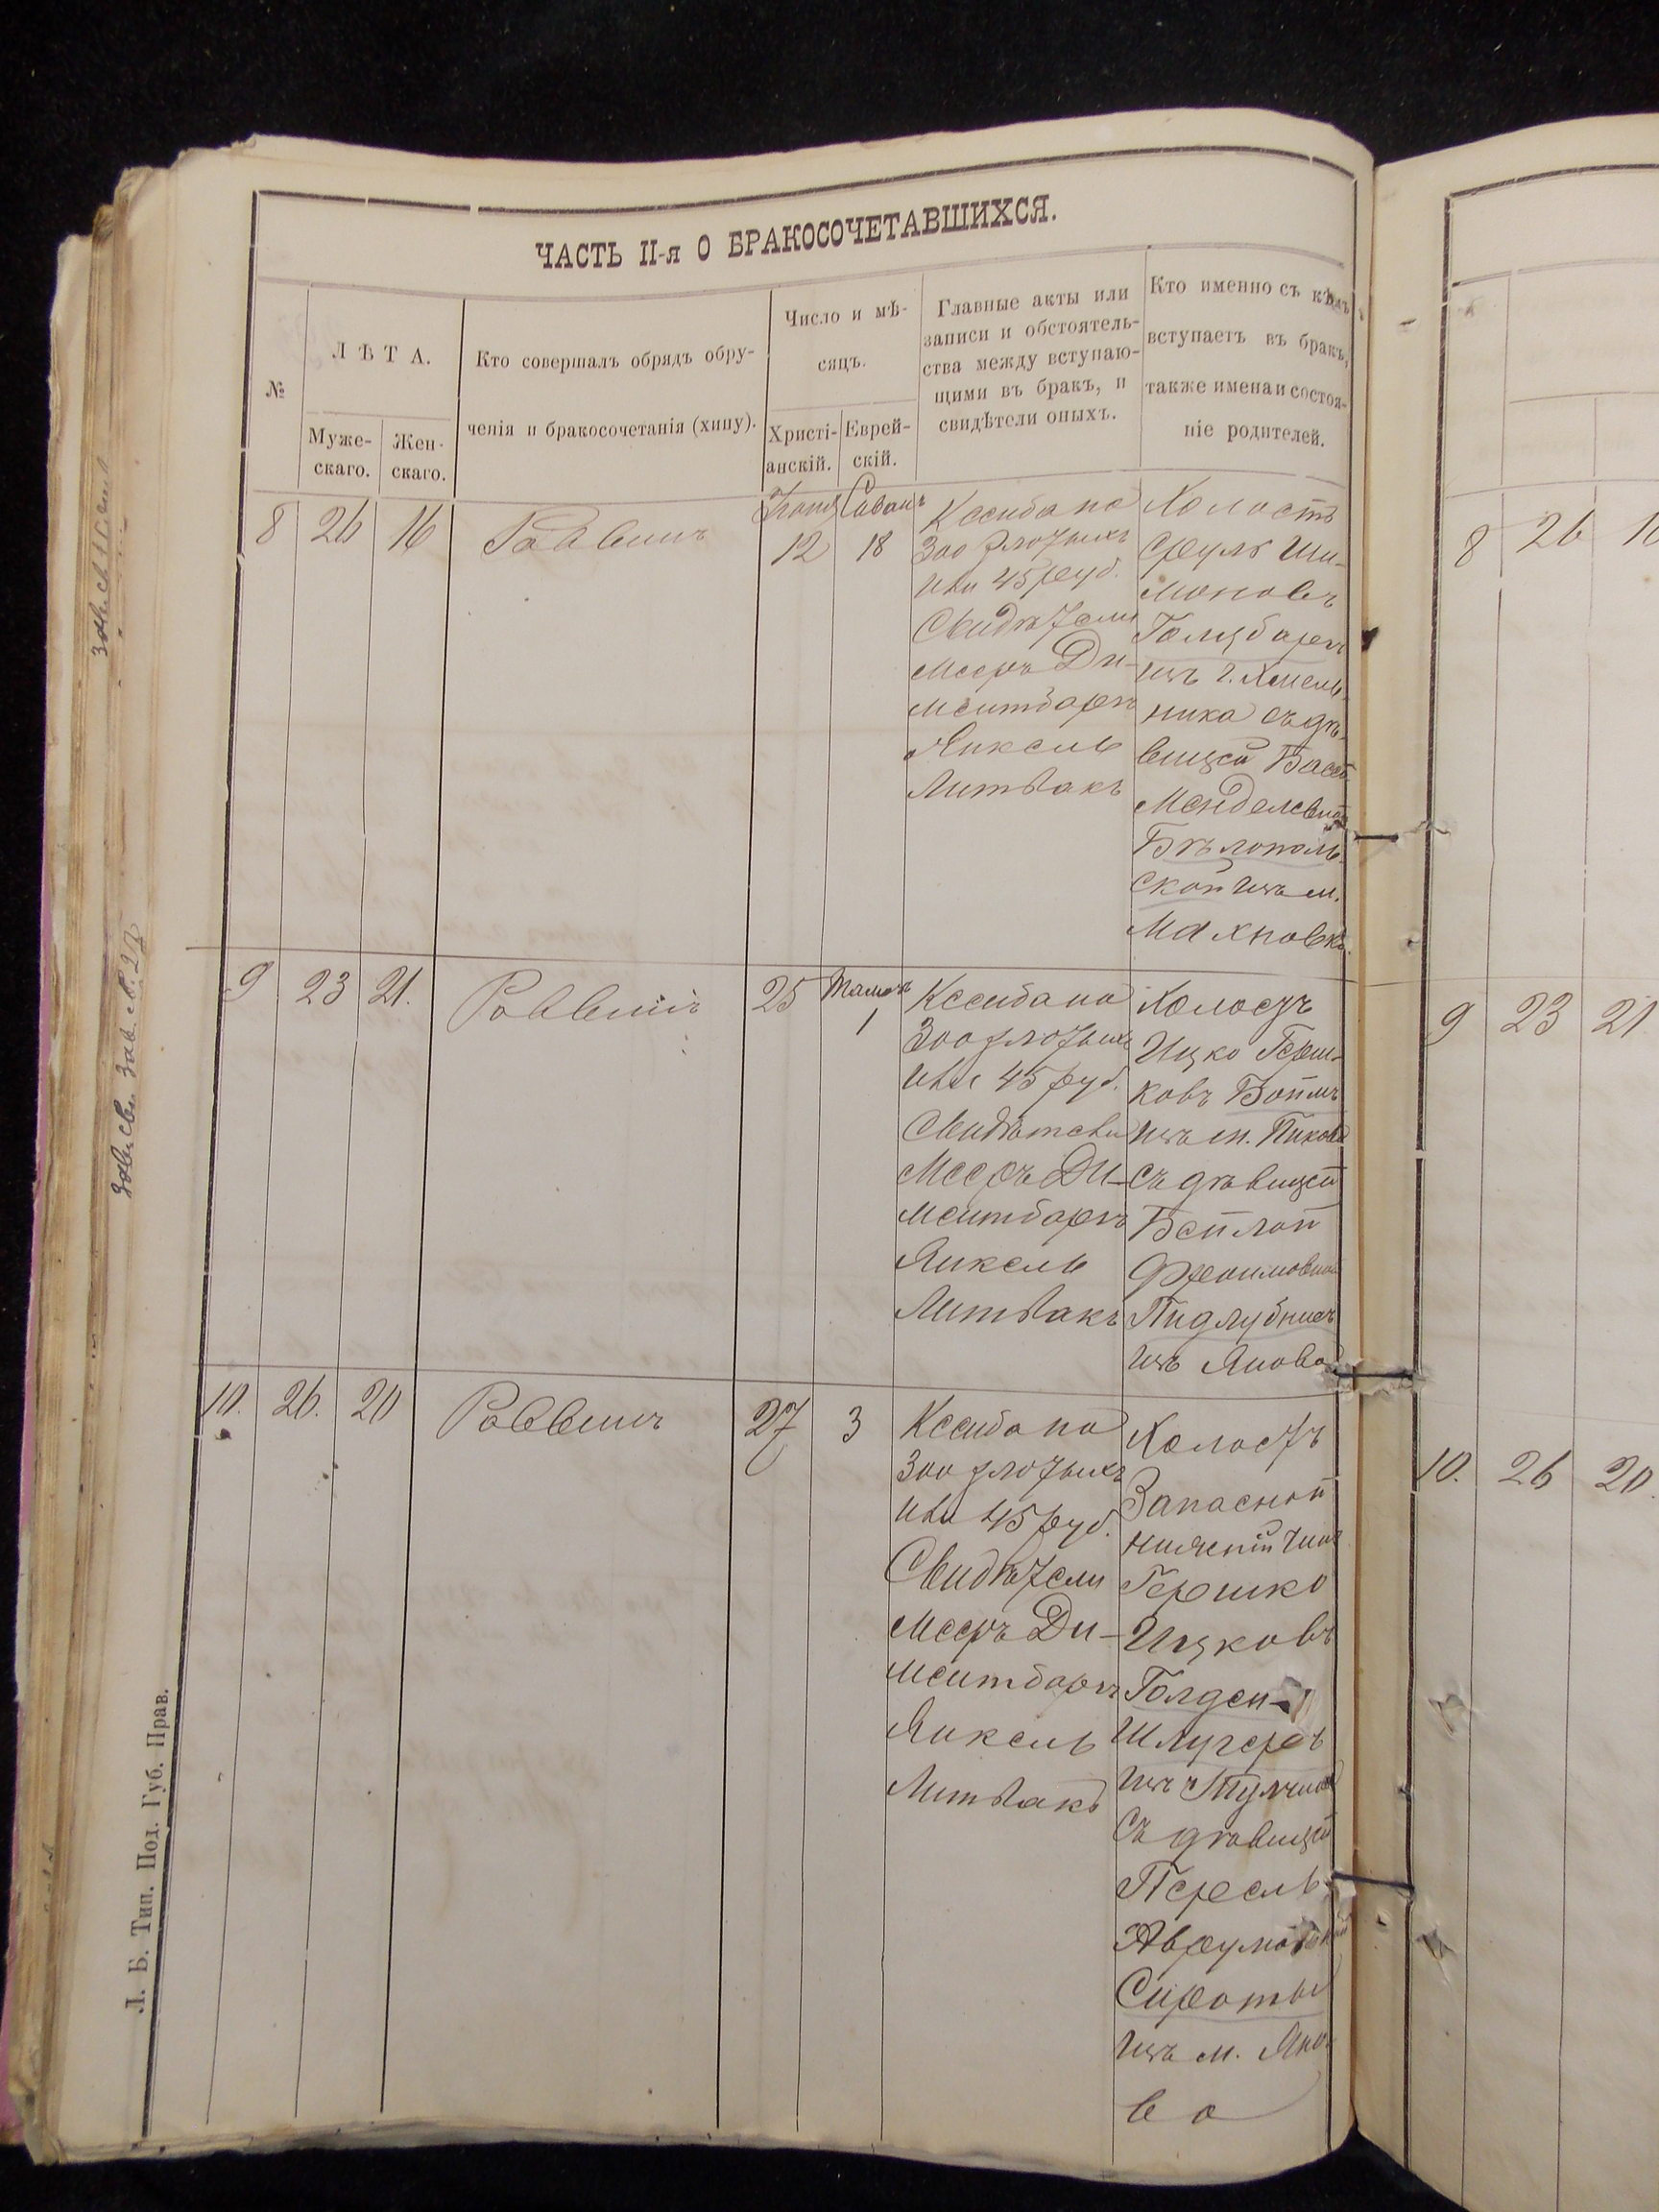 ЧАСТЬ II-я О БРАКОСОЧЕТАВШИХСЯ.
№
ЛѢТА.
Муже-
скаго.
Жен-
скаго.
Кто совершалъ обрядъ обру-
ченія и бракосочетанія (хипу).
Число и мѣ-
сяцъ.
Христі-
анскій.
Еврей-
скій.
Главные акты или
записи и обстоятель-
ства между вступаю-
щими въ бракъ, и
свидѣтели оныхъ.
Кто именно съ кѣмъ
вступаетъ въ бракъ,
также имена и состоя-
ніе родителей.
8
26
16
Раввинъ
Іюня
12
Сиванъ
18
Ксиба на
300 злотыхъ
или 45 руб.
Свидѣтели
Мееръ Ди-
ментбаръ
Янкель
Литвакъ
Холостъ
Сруль Ши-
моновъ
Голцбаръ
изъ г. Хмель-
ника съ дѣ-
вицей
Менделевной
Бѣлополь-
ской изъ м.
Махновки
9
23
21.
Раввинъ
25
Тамузъ
1
Ксиба на
300 злотыхъ
или 45 руб.
Свидѣтели
Мееръ Ди-
ментбаръ
Янкель
Литвакъ
Холостъ
Ицко Герш-
ковъ
изъ м. Пикова
съ дѣвицей
Бейлой
Фроимовной
изъ Янова
10.
26.
20
Раввинъ
27
3
Ксиба на
300 злотыхъ
или 45 руб.
Свидѣтели
Мееръ Ди-
ментбаръ
Янкель
Литвакъ
Холостъ
Запасной
нижній чинъ
Гершко
Ицковъ
Голден-
Шлугеръ
изъ Тулчина
съ дѣвицей
Перель
Аврумовной
Сироты
изъ м. Яно-
ва
Л. Б. Тип. Под. Губ. Прав.
8
26
9
23
21
10.
26
20.